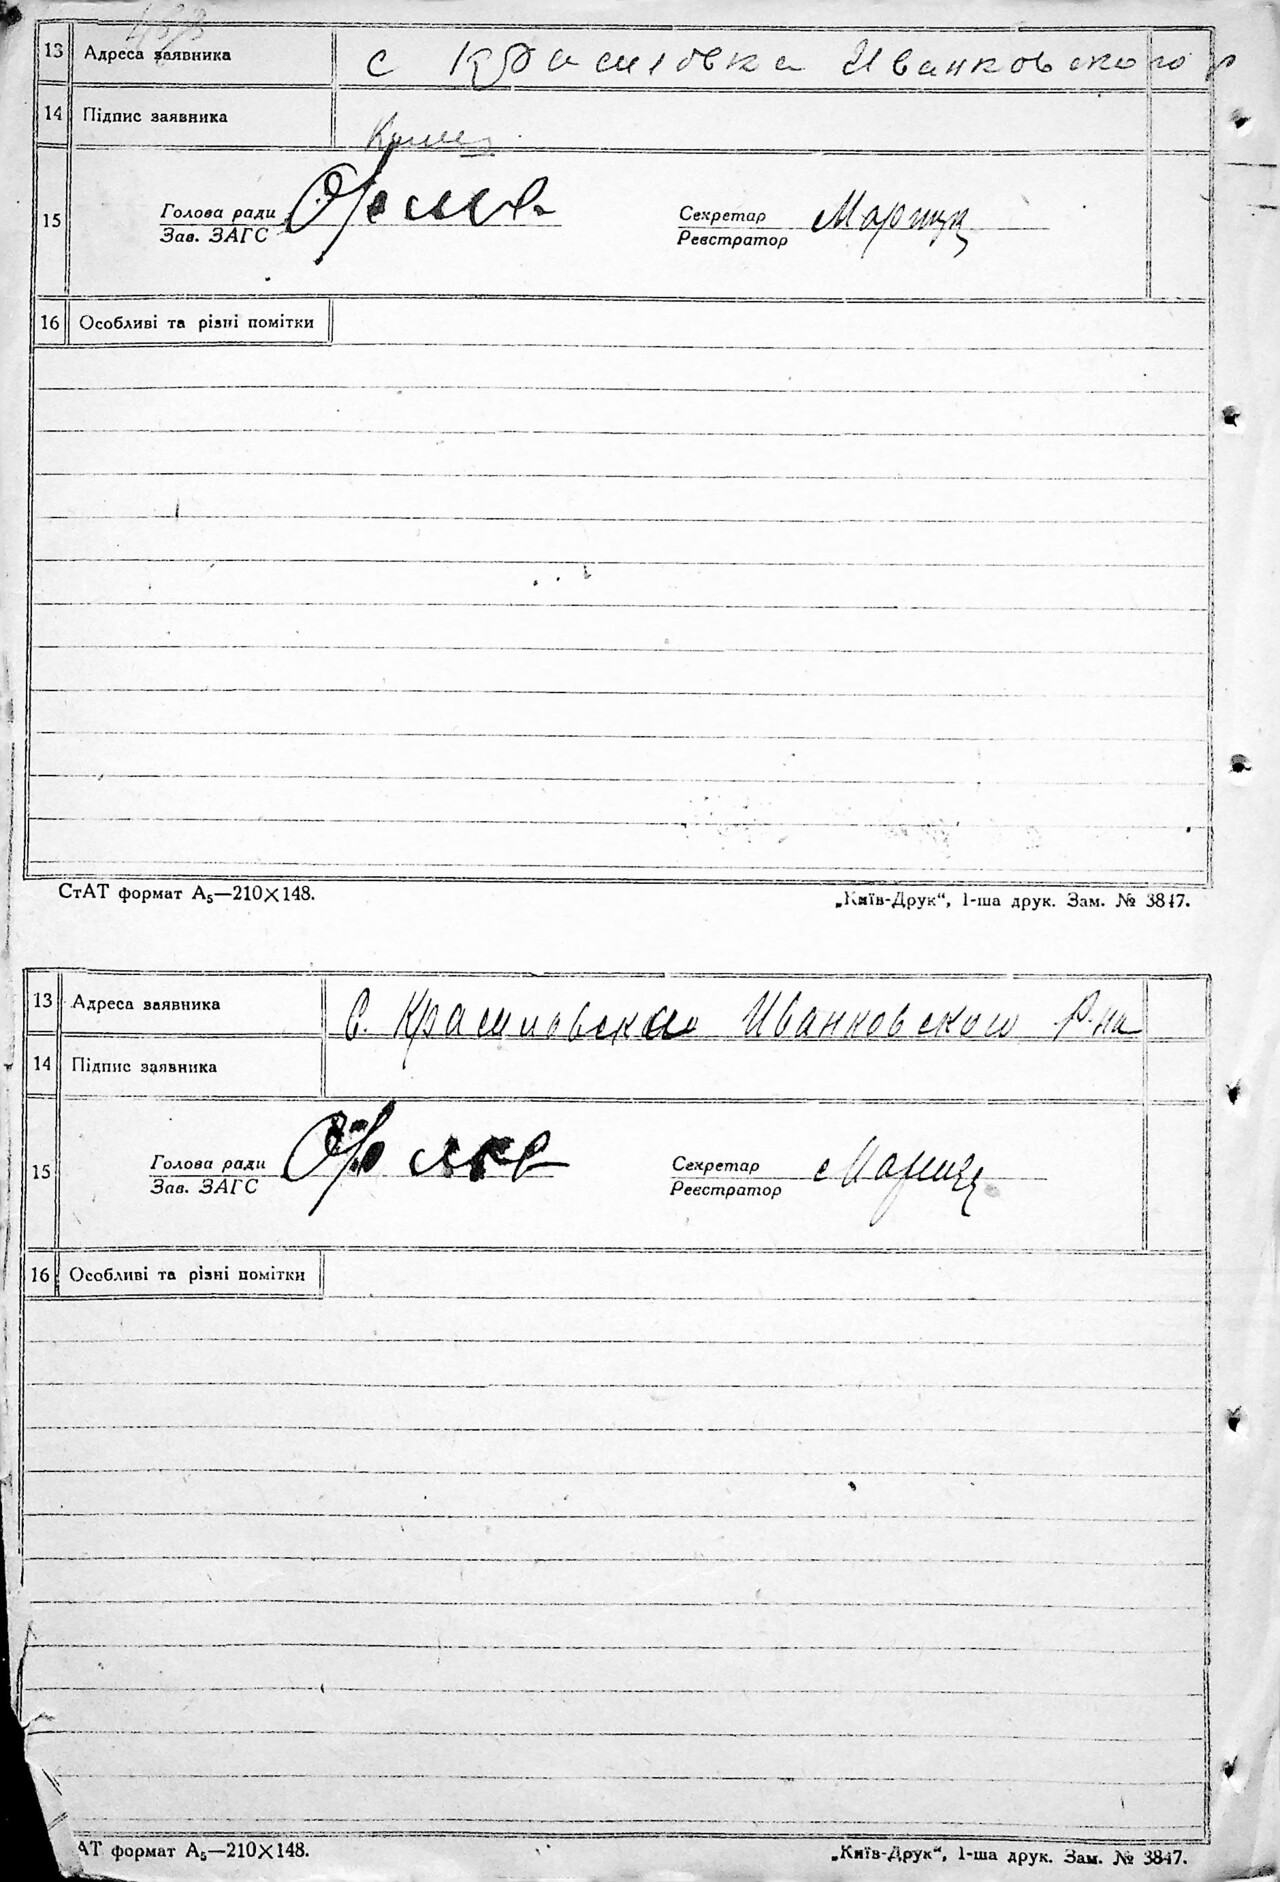 13 Адреса заявника с Красиловка Иванковского р
14 Підпис заявника
15 Голова ради Секретар
Зав. ЗАГС Реєстратор
16 Особливі та різні помітки
СтАТ формат А₅—210×148. „Київ-Друк“, 1-ша друк. Зам. № 3847.
13 Адреса заявника С. Иванковского Р-на
14 Підпис заявника
15 Голова ради Секретар
Зав. ЗАГС Реєстратор
16 Особливі та різні помітки
АТ формат А₅—210×148. „Київ-Друк“, 1-ша друк. Зам. № 3847.